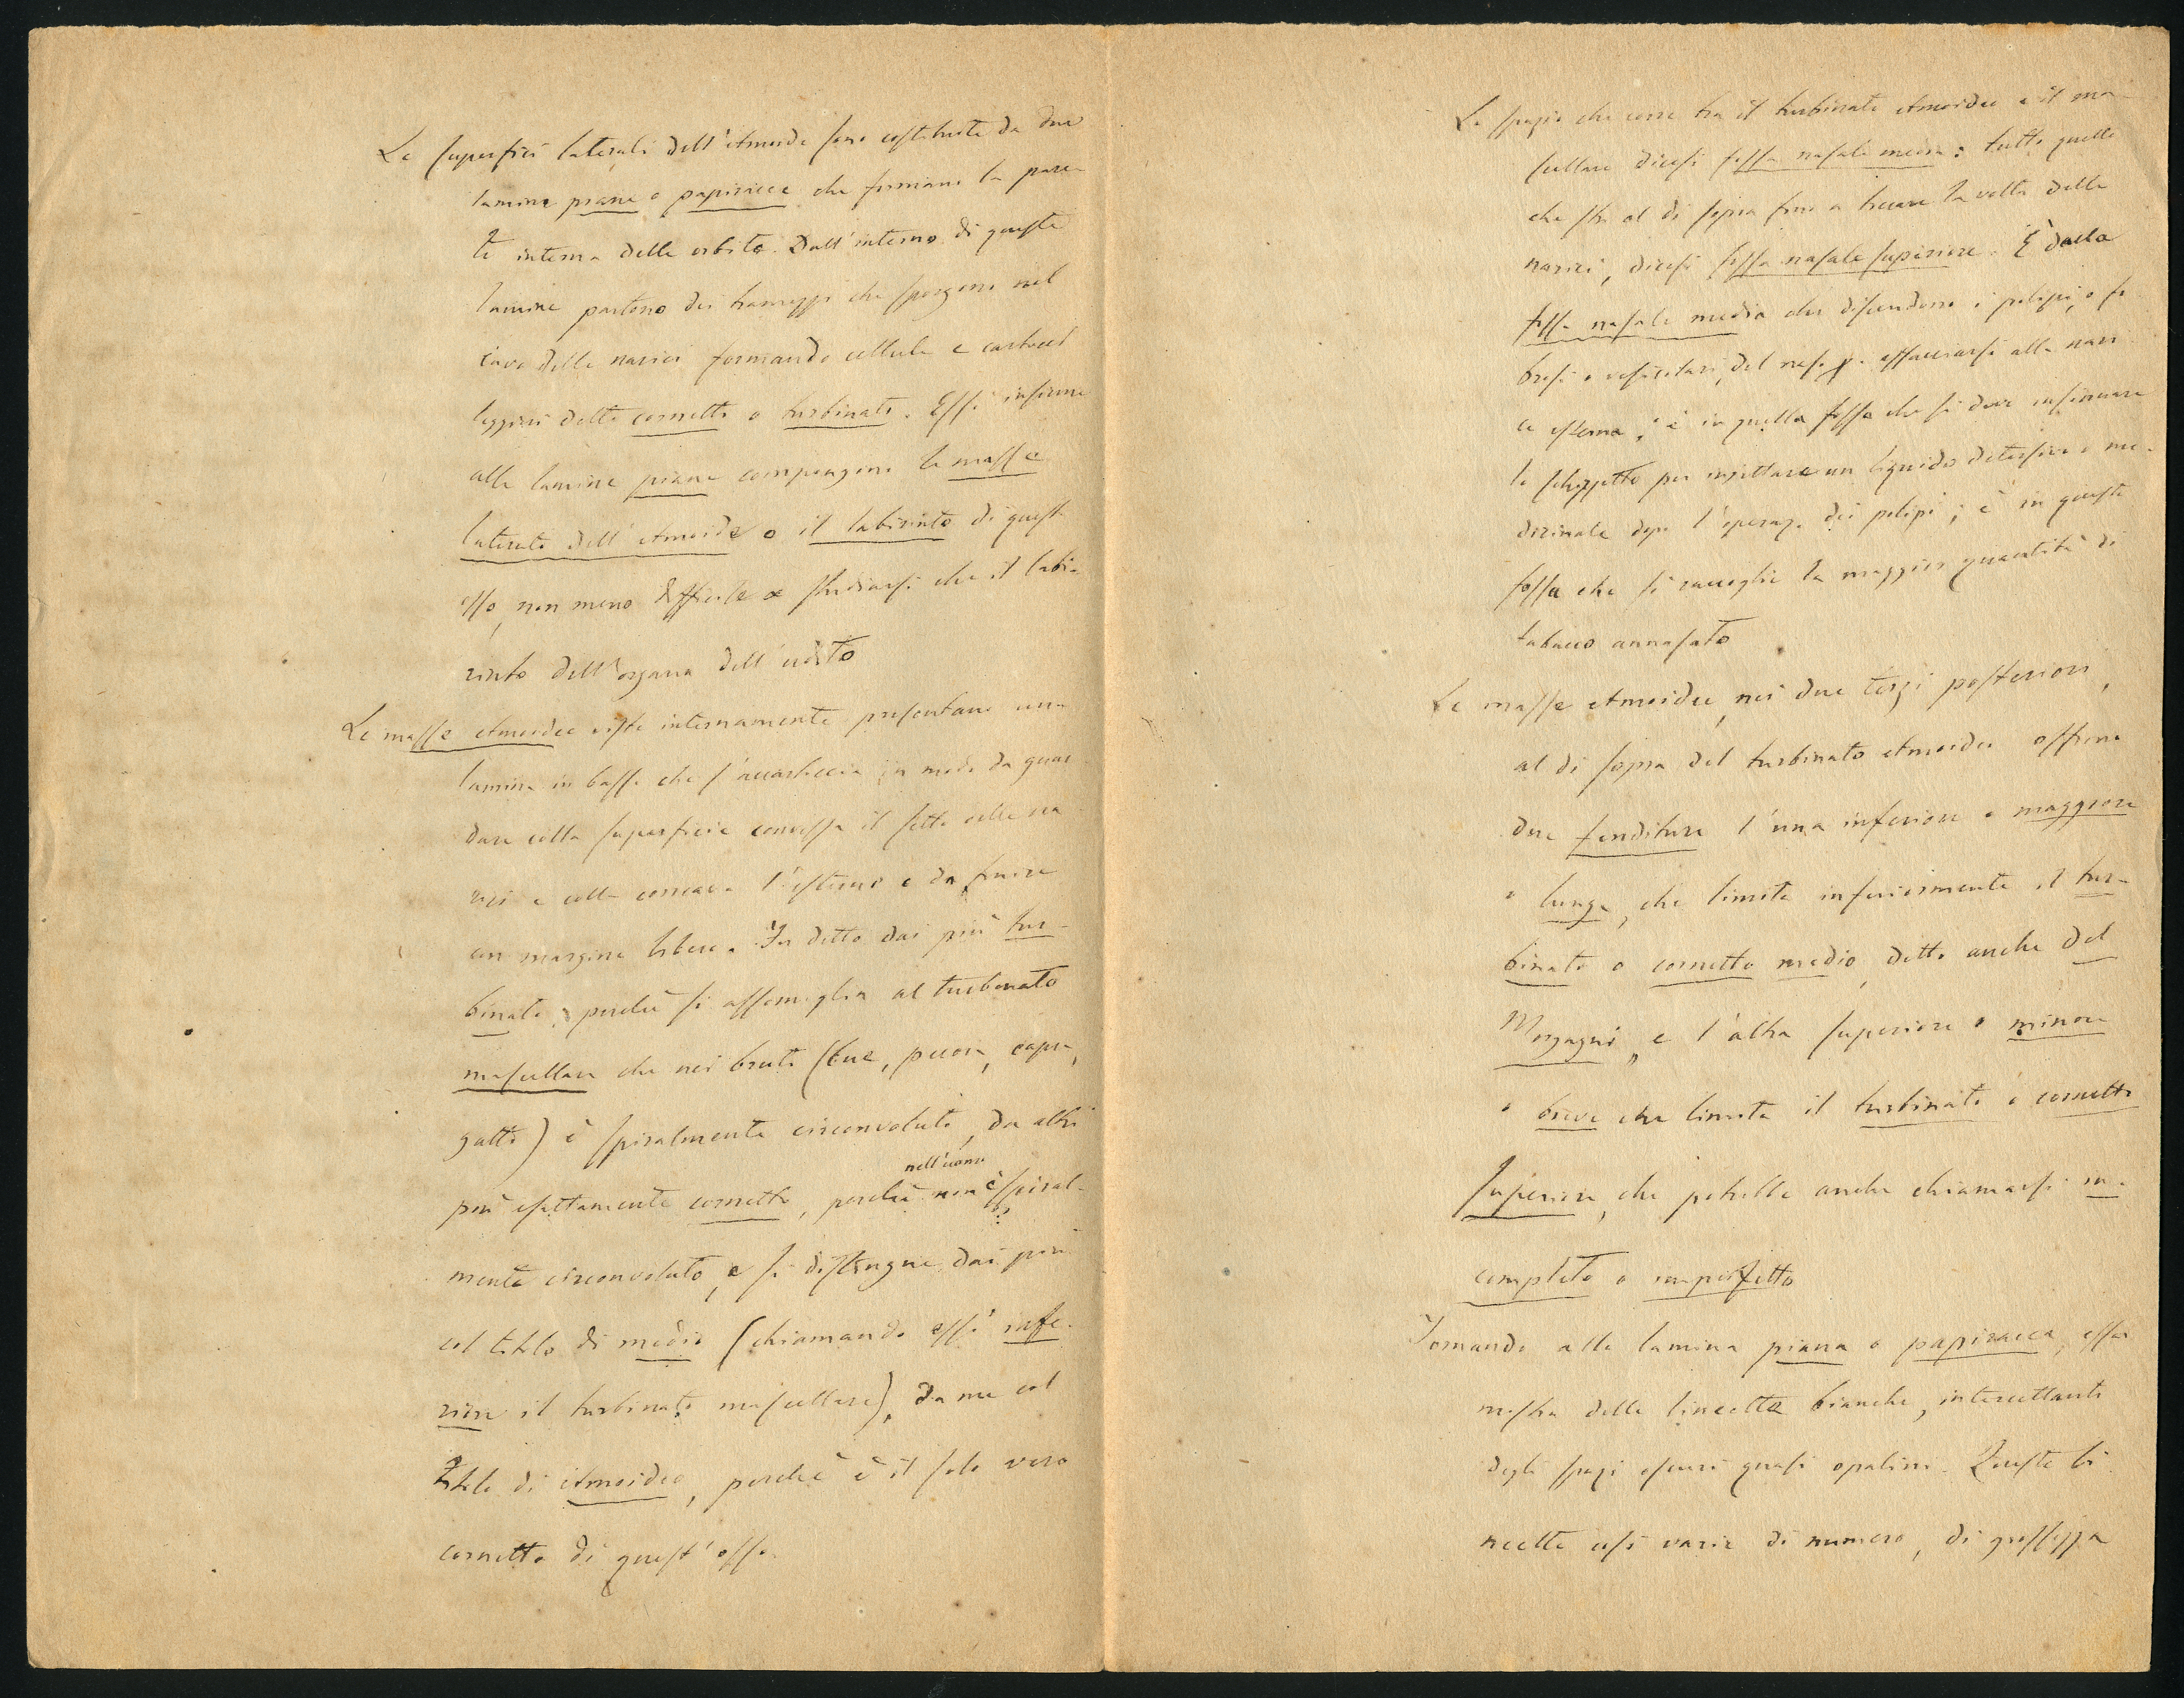 Le superfici laterali dell'etmoide sono costituite da due
lamine piane o papiracee che formano la pare-
te interna delle orbite. Dall'interno di queste
lamine partono dei tramezzi che sporgono nel
cavo delle narici formando cellule e cartocci
leggieri detti cornetti o turbinati. Essi insieme
alle lamine piane compongono le masse
laterali dell'etmoide o il labirinto di quest'
osso, non meno difficile a studiarsi che il labi-
rinto dell'organo dell'udito
Le masse etmoidee viste internamente presentano una
lamina in basso che s'accartoccia in modo da guar-
dare colla superficie convessa il setto delle na-
rici e colla concava l'esterno e da finire
con margine libero. Fu detto dai più tur-
binato, perchè si assomiglia al turbinato
mascellare che nei bruti (bue, pecora, capra,
gatto) è spiralmente circonvoluto, da altri
più esattamente cornetto, perchè nell'uomo non è spiral-
mente circonvoluto, e si distingue dai più
col titolo di medio (chiamando essi infe-
riore il turbinato mascellare), da me col
titolo di etmoideo, perchè è il solo vero
cornetto di quest'osso.
Lo spazio che corre tra il turbinato etmoideo e il ma-
scellare dicesi fossa nasale media: tutto quello
che sta al di sopra fino a toccare la volta delle
narici, dicesi fossa nasale superiore. È dalla
fossa nasale media che discendono i polipi, o fi-
brosi o vescicolari, del naso p. affacciarsi alla nari-
ce esterna; è in quella fossa che si deve insinuare
lo schizzetto per iniettare un liquido detersivo o me-
dicinale dopo l'operaz. dei polipi; è in questa
fossa che si raccoglie la maggior quantità di
tabacco annasato
Le masse etmoidee, nei due terzi posteriori,
al di sopra del turbinato etmoideo offrono
due fenditure l'una inferiore o maggiore
o lunga, che limita inferiormente il tur-
binato o cornetto medio, detto anche del
Morgagni, e l'altra superiore o minore
o breve che limita il turbinato o cornetto
superiore, che potrebbe anche chiamarsi in-
completo o imperfetto
Tornando alla lamina piana o papiracea, essa
mostra delle lineette bianche, intercettanti
degli spazi oscuri quasi opalini. Queste li-
neette così varie di numero, di grossezza